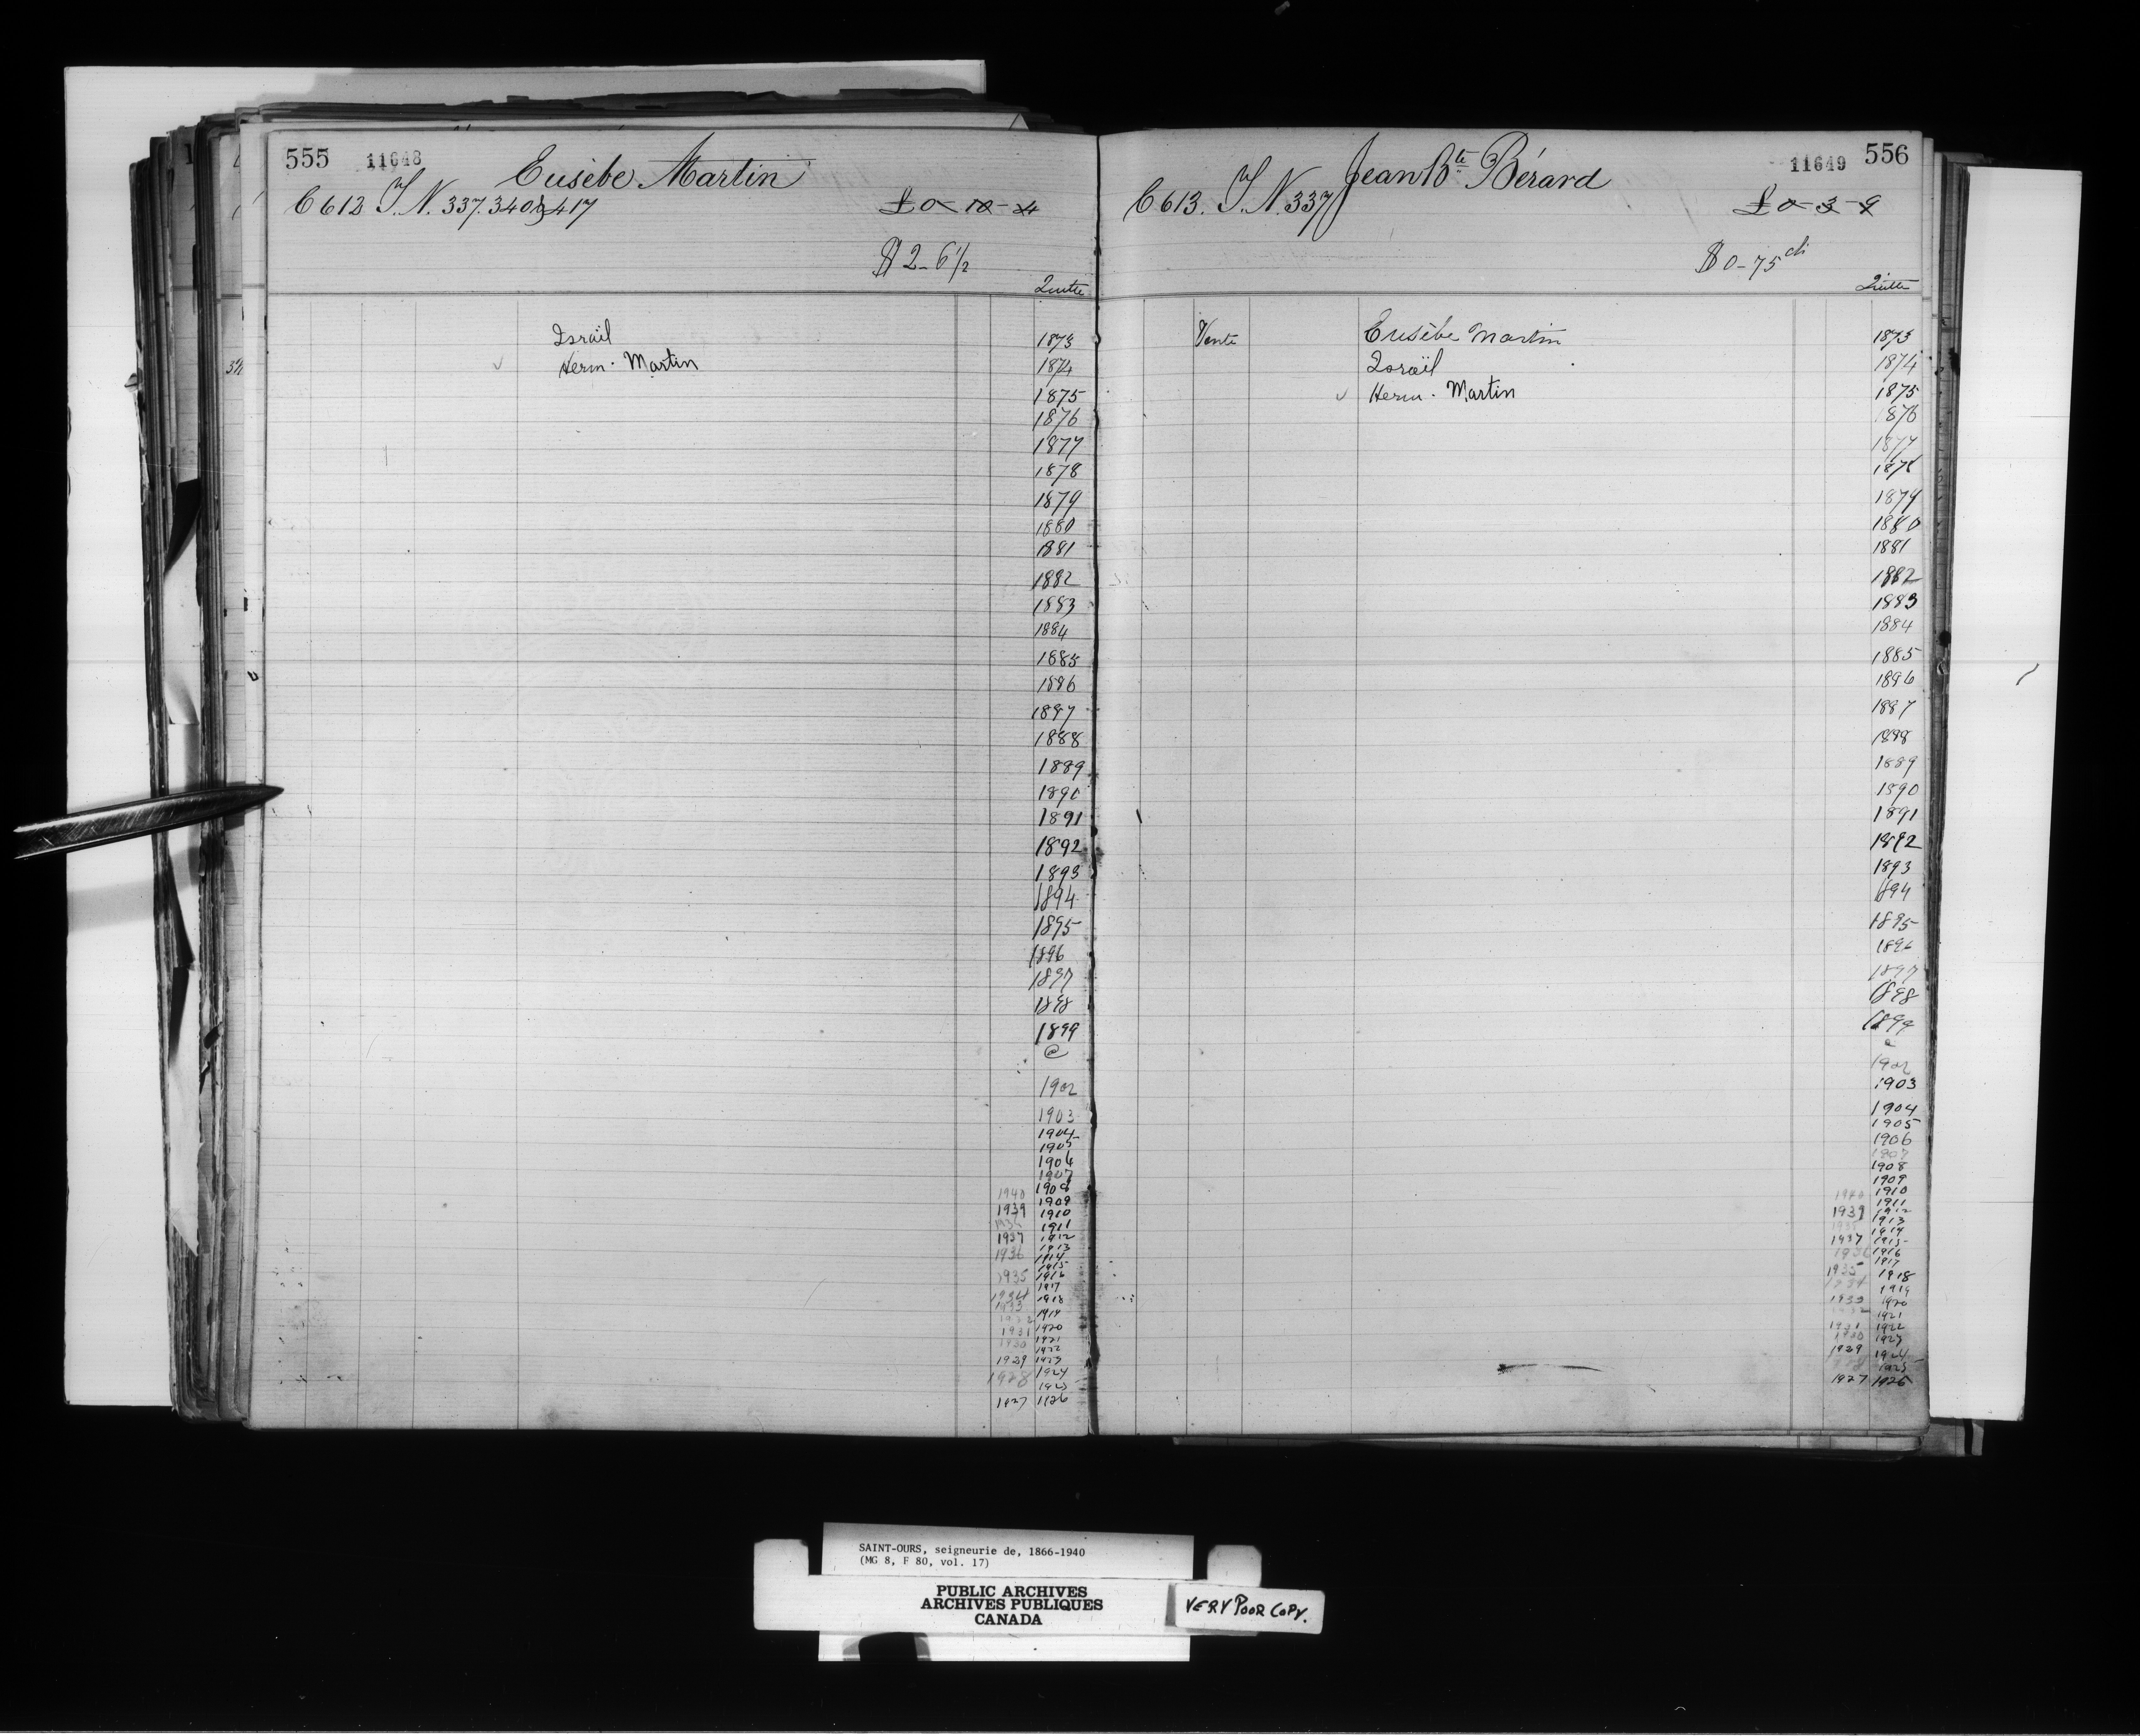 555 11648 Eusèbe Martin
C 612 T. N. 337. 340 & 417 £ 0 - 10 - 4
$ 2 - 6 1/2
Quitte
Israël 1873
Herm. Martin 1874
1875
1876
1877
1878
1879
1880
1881
1882
1883
1884
1885
1886
1887
1888
1889
1890
1891
1892
1893
1894
1895
1896
1897
1898
1899
@
1902
1903
1904
1905
1906
1907
1908
1940 1909
1939 1910
1911
1937 1912
1936 1913
1914
1915
1935 1916
1917
1934 1918
1933 1919
1931 1920
1930 1921
1922
1929 1923
1928 1924
1925
1927 1926
11649 556
Jean Bte Bérard
C 613. T. N. 337 £ 0 - 3 - 9
$ 0 - 75 cts
Quitte
Vente Eusèbe Martin 1873
Israël 1874
Herm. Martin 1875
1876
1877
1878
1879
1880
1881
1882
1883
1884
1885
1886
1887
1888
1889
1890
1891
1892
1893
1894
1895
1896
1897
1898
1899
1902
1903
1904
1905
1906
1907
1908
1909
1940 1910
1911
1939 1912
1913
1914
1937 1915
1936 1916
1917
1935 1918
1934 1919
1933 1920
1932 1921
1931 1922
1930 1923
1929 1924
1928 1925
1927 1926
SAINT-OURS, seigneurie de, 1866-1940
(MG 8, F 80, vol. 17)
PUBLIC ARCHIVES
ARCHIVES PUBLIQUES
CANADA
VERY POOR COPY.